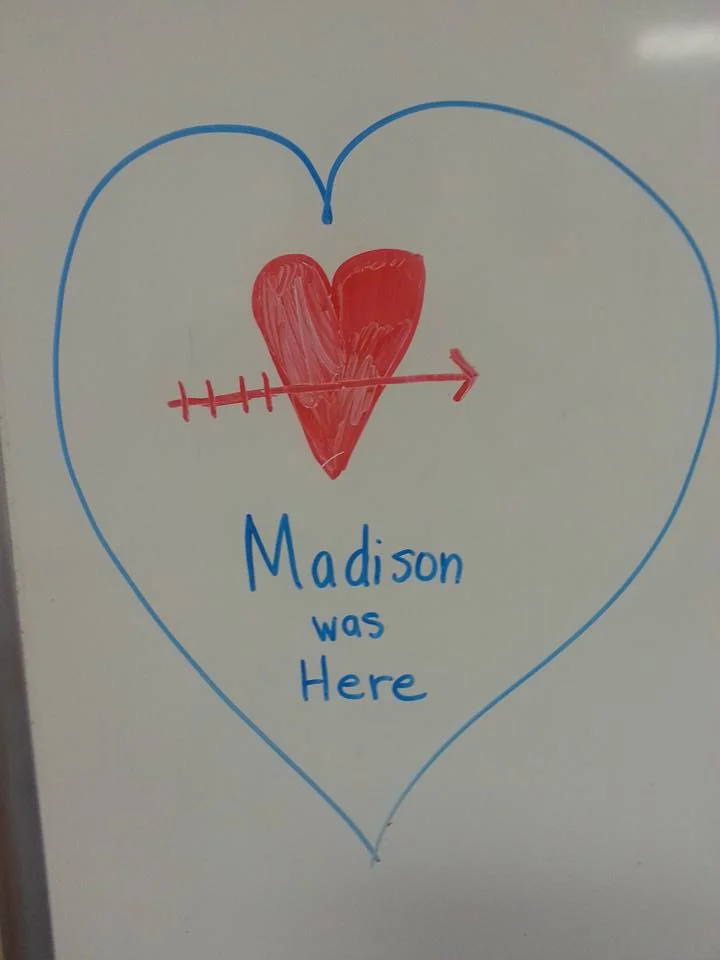 Madison
was
Here